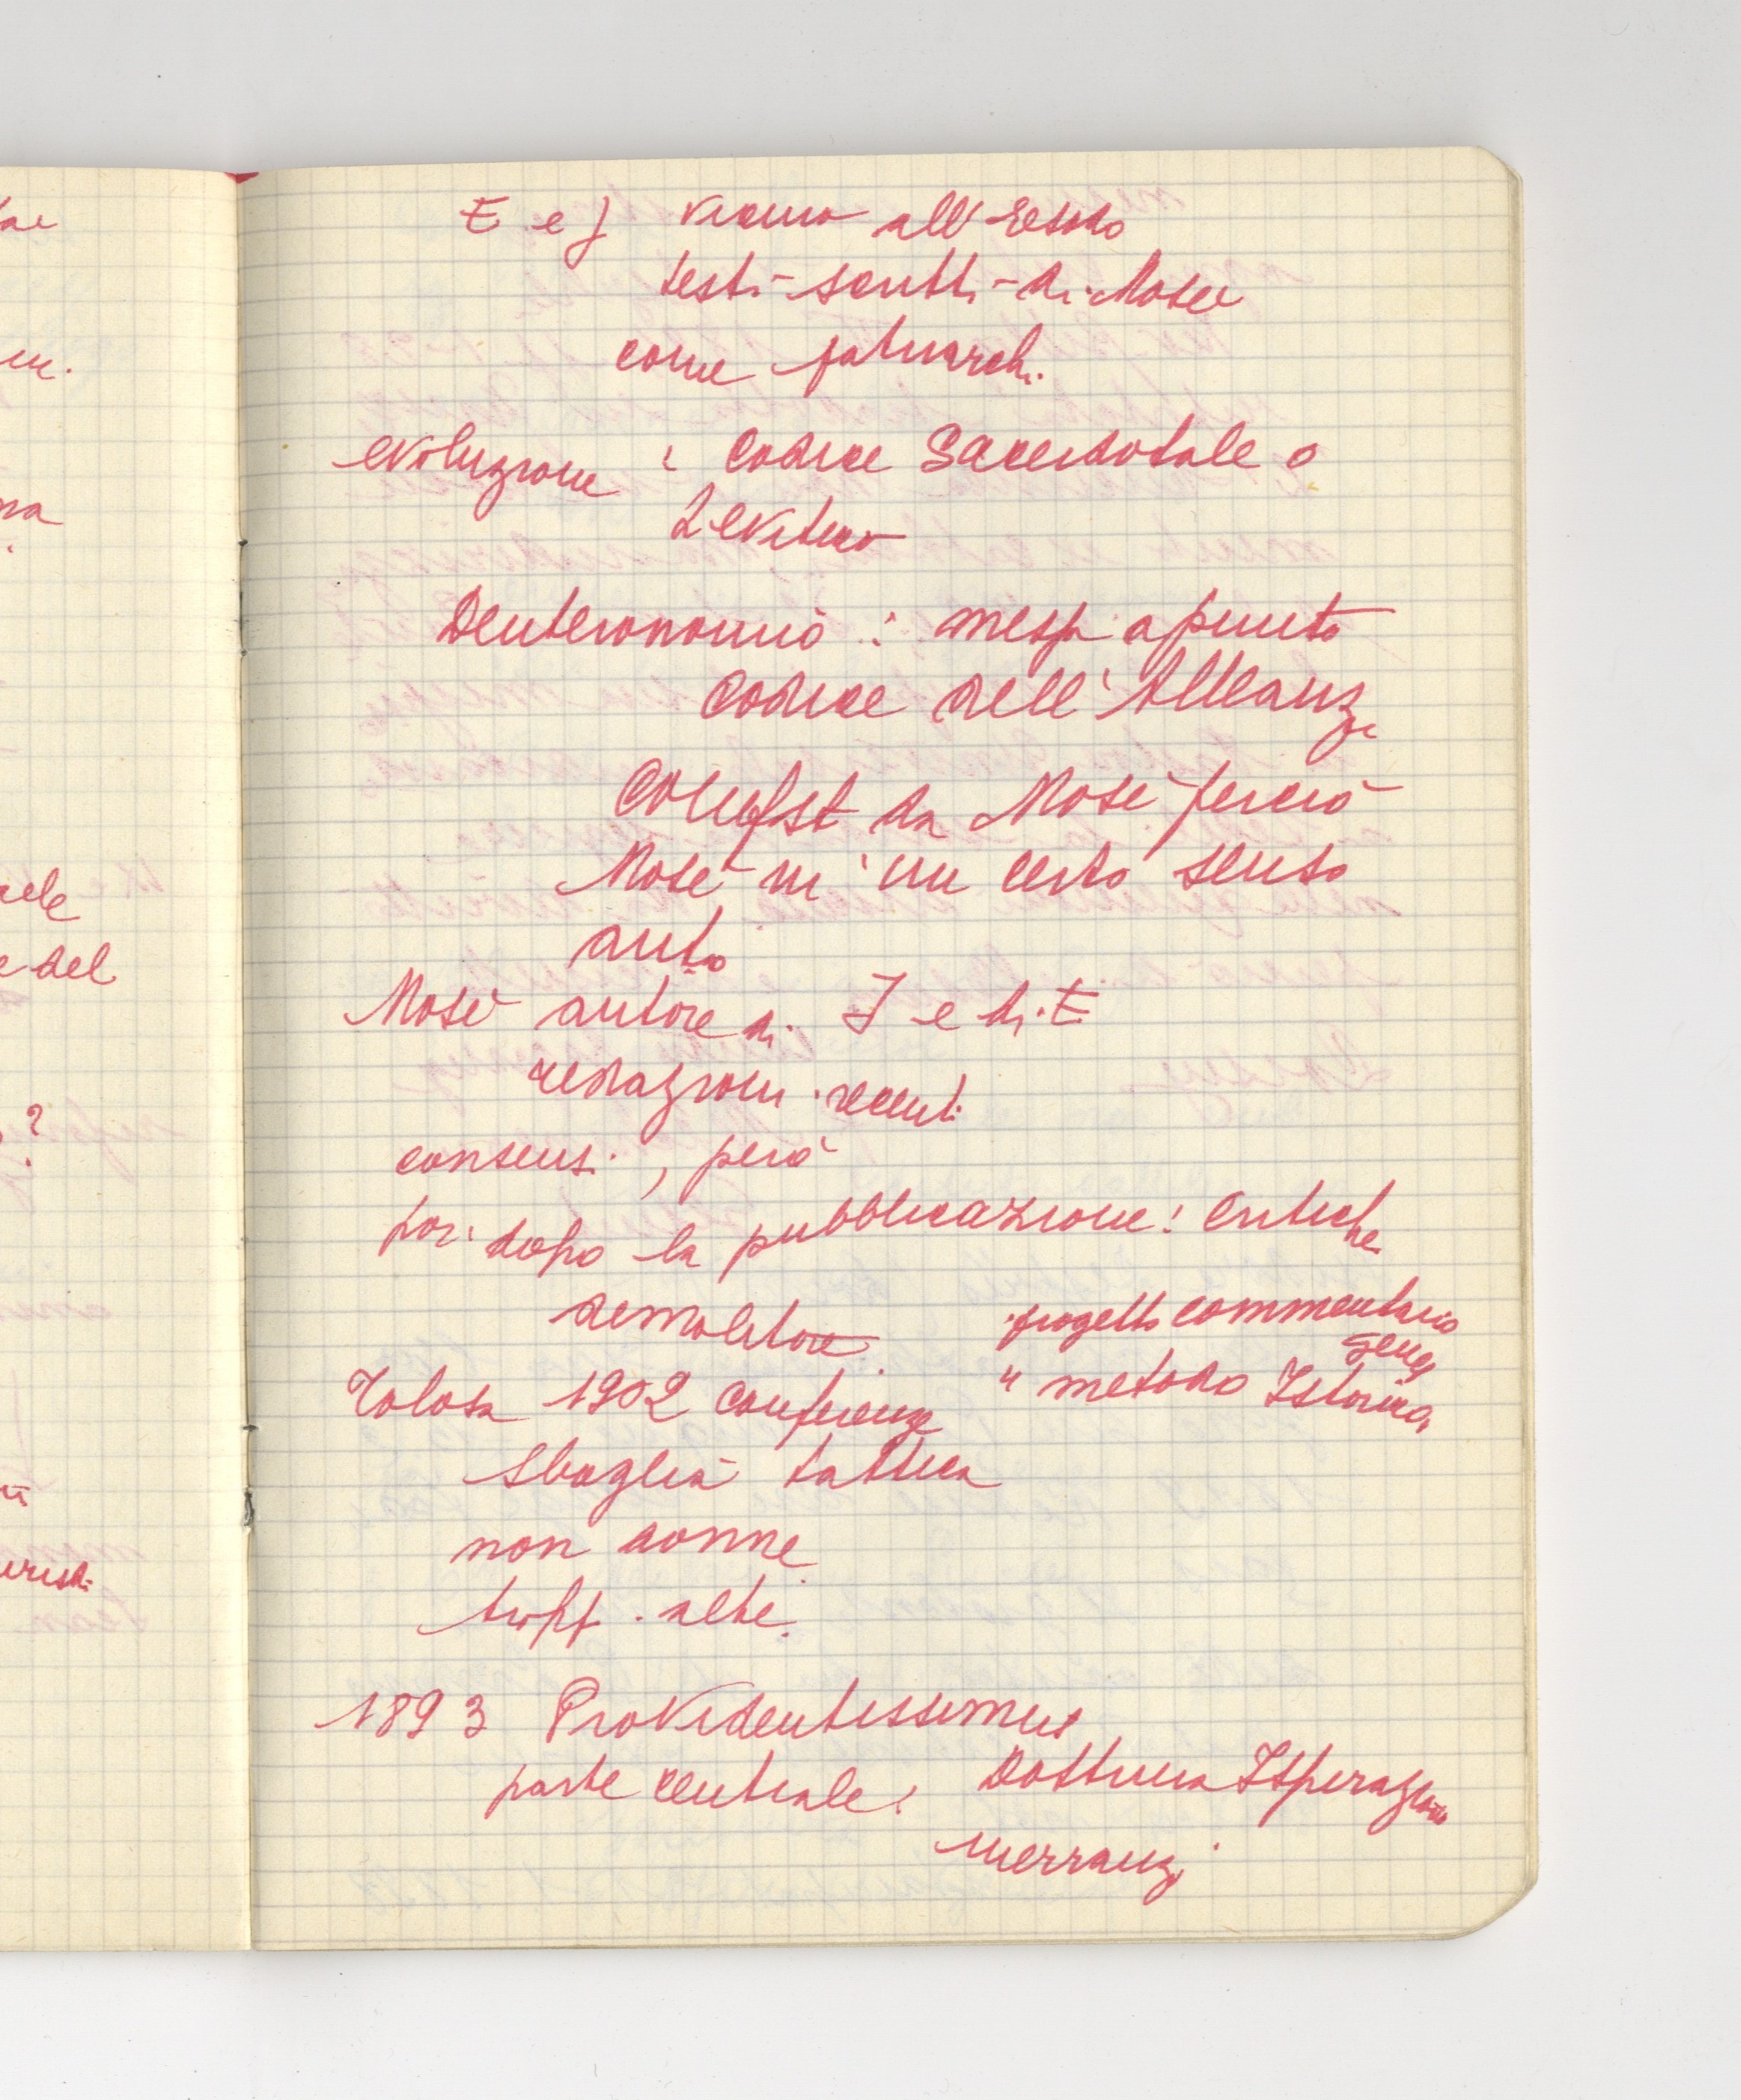 E e J vicino all'Esodo
testi - scritti - di Mosè
come patriarchi.
evoluzione : Codice Sacerdotale o
Levitico
Deuteronomio : messa a punto
Codice dell'Alleanza
Compost da Mosè perciò
Mosè in un certo senso
auto
Mosè autore di J e di E
redazioni recenti
consensi , però
poi dopo la pubblicazione : critiche
demolitore
progetto commentario
Genesi
Tolosa 1902 conferenze
" metodo Istorico
sbagliò tattica
non donne
tropp. alte.
1893 Providentissimus
parte centrale :
Dottrina Ispirazione
inerranza
ele
e del
?